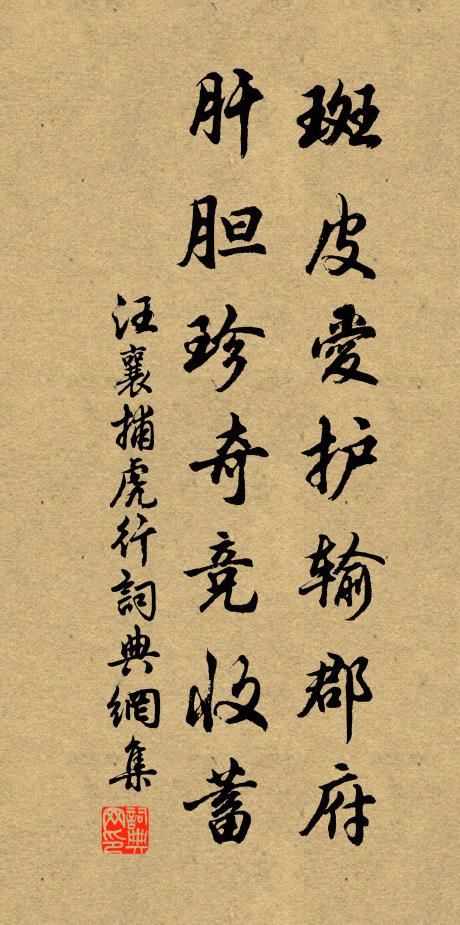 斑皮愛护输郡府
肝胆珍奇竞收蓄
汪襄捕虎行詞典網集
詞典网印